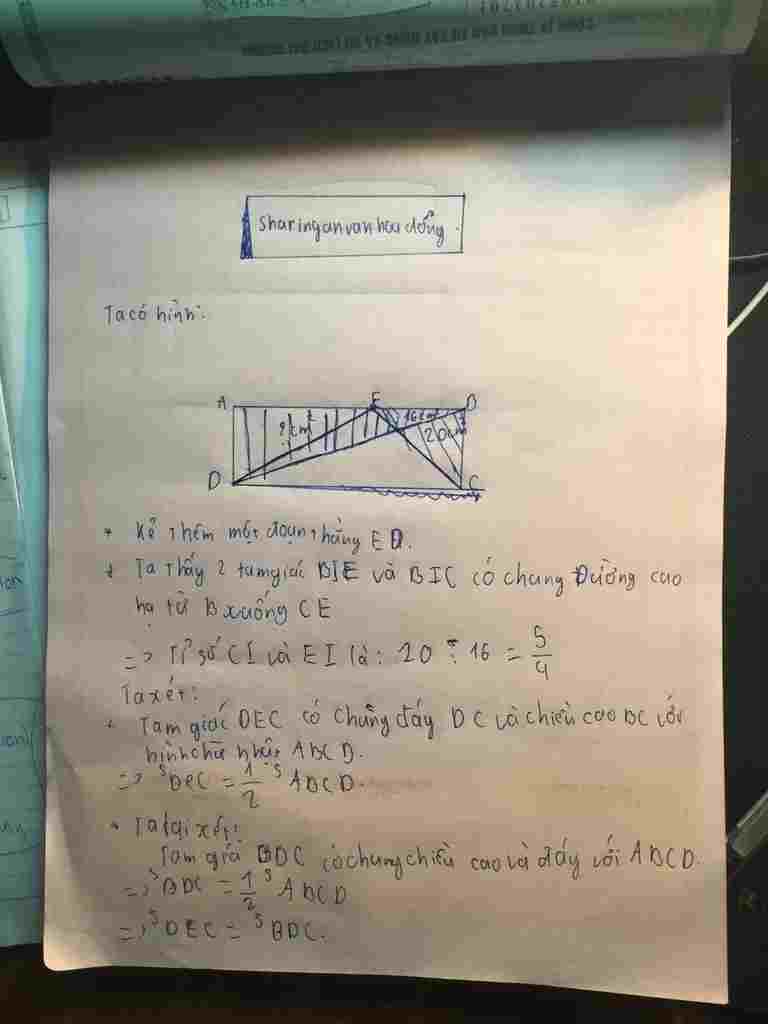 Sharingan van hoa đống.
Ta có hình:
A E B
? cm² 16 cm² 20cm²
D C
+ Kẻ thêm một đoạn thẳng ED.
+ Ta thấy 2 tam giác BIE và BIC có chung Đường cao
hạ từ B xuống CE
=> Tỉ số CI và EI là: 20 : 16 = 5/4
Ta xét:
Tam giác DEC có chung đáy DC và chiều cao BC với
hình chữ nhật ABCD.
=> S DEC = 1/2 S ABCD.
+ Ta lại xét:
Tam giá BDC có chung chiều cao và đáy với ABCD.
=> S BDC = 1/2 S ABCD
=> S DEC = S BDC.